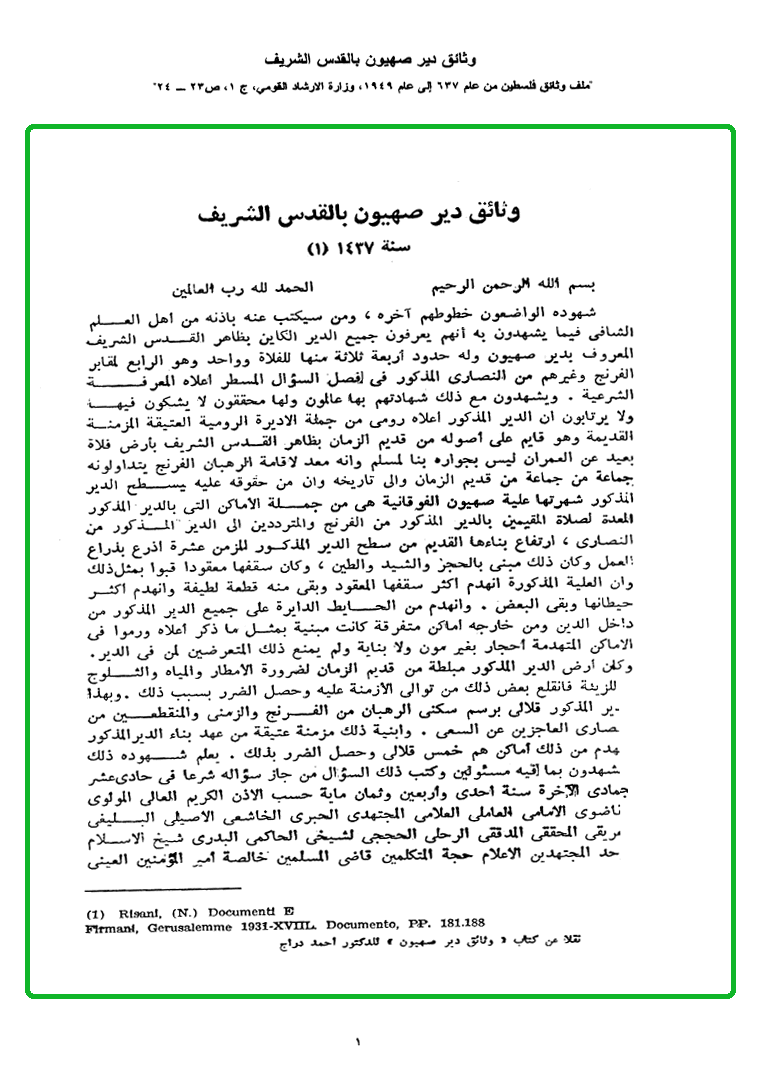 وثائق دير صهيون بالقدس الشريف
"ملف وثائق فلسطين من عام ٦٣٧ إلى عام ١٩٤٩، وزارة الارشاد القومي، ج ١، ص٢٣ ــ ٢٤"
وثائق دير صهيون بالقدس الشريف
سنة ١٤٣٧ (١)
بسم الله الرحمن الرحيم الحمد لله رب العالمين
شهوده الواضعون خطوطهم آخره ، ومن سيكتب عنه باذنه من أهل العـــلم
الشافى فيما يشهدون به أنهم يعرفون جميع الدير الكاين بظاهر القــدس الشريف
المعروف بدير صهيون وله حدود أربعة ثلاثة منها للفلاة وواحد وهو الرابع لمقابر
الفرنج وغيرهم من النصارى المذكور فى افصل السؤال المسطر أعلاه المعرفــــة
الشرعية . ويشهدون مع ذلك شهادتهم بها عالمون ولها محققون لا يشكون فيهــا
ولا يرتابون ان الدير المذكور أعلاه رومى من جملة الاديرة الرومية العتيقة المزمنــة
القديمة وهو قايم على أصوله من قديم الزمان بظاهر القــدس الشريف بأرض فلاة
بعيد عن العمران ليس بجواره بنا لمسلم وانه معد لاقامة الرهبان الفرنج يتداولونه
جماعة من جماعة من قديم الزمان والى تاريخه وان من حقوقه عليه يســـطح الدير
المذكور شهرتها علية صهيون الفوقانية هى من جمــلة الأماكن التى بالدير المذكور
المعدة لصلاة المقيمين بالدير المذكور من الفرنج والمترددين الى الدير المــذكور من
النصارى ، ارتفاع بناءها القديم من سطح الدير المذكــور المزمن عشرة اذرع بذراع
العمل وكان ذلك مبنى بالحجز والشيد والطين ، وكان سقفها معقودا قبوا بمثل ذلك
وان العلية المذكورة انهدم أكثر سقفها المعقود وبقى منه قطعة لطيفة وانهدم أكثــر
حيطانها وبقى البعض . وانهدم من الحــايط الدايرة على جميع الدير المذكور من
داخل الدين ومن خارجه أماكن متفرقة كانت مبنية بمثــل ما ذكر أعلاه ورموا فى
الاماكن المتهدمة أحجار بغير مون ولا بناية ولم يمنع ذلك المتعرضين لمن فى الدير.
وكان أرض الدير المذكور مبلطة من قديم الزمان لضرورة الأمطار والمياه والثــلوج
للزيئة فانقلع بعض ذلك من توالى الأزمنة عليه وحصل الضرر بسبب ذلك .وبهذا
ير المذكور قلالى برسم سكنى الرهبان من الفــرنج والزمنى والمنقطعــين من
صارى العاجزين عن السعى . وابنية ذلك مزمنة عتيقة من عهد بناء الديرالمذكور
هدم من ذلك أماكن هم خمس قلالى وحصل الضرر بذلك . يعلم شــهوده ذلك
شهدون بما فيه مسئولين وكتب ذلك السؤال من جاز سؤاله شرعا فى حادى عشر
جمادى الآخرة سنة احدى وأربعين وثمان ماية حسب الاذن الكريم العالى المولوى
ناضوى الامامى العاملى العلامى المجتهدى الحبرى الخاشعى الاصيلى البـــليغى
ريقى المحققى المدققى الرحلى الحججى لشيخى الحاكمى البدرى شيخ الاســلام
حد المجتهدين الأعلام حجة المتكلمين قاضى المسلمين خالصة أمير المؤمنين العينى
(1) Risani, (N.) Documenti E
Firmani, Gerusalemme 1931-XVIII. Documento, PP. 181.188
نقلا عن كتاب « وثائق دير صهيون » للدكتور أحمد دراج
١